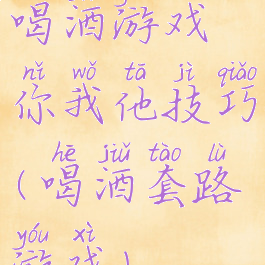 喝酒游戏
nǐ wǒ tā jì qiǎo
你我他技巧
hē jiǔ tào lù
(喝酒套路
yóu xì
游戏)